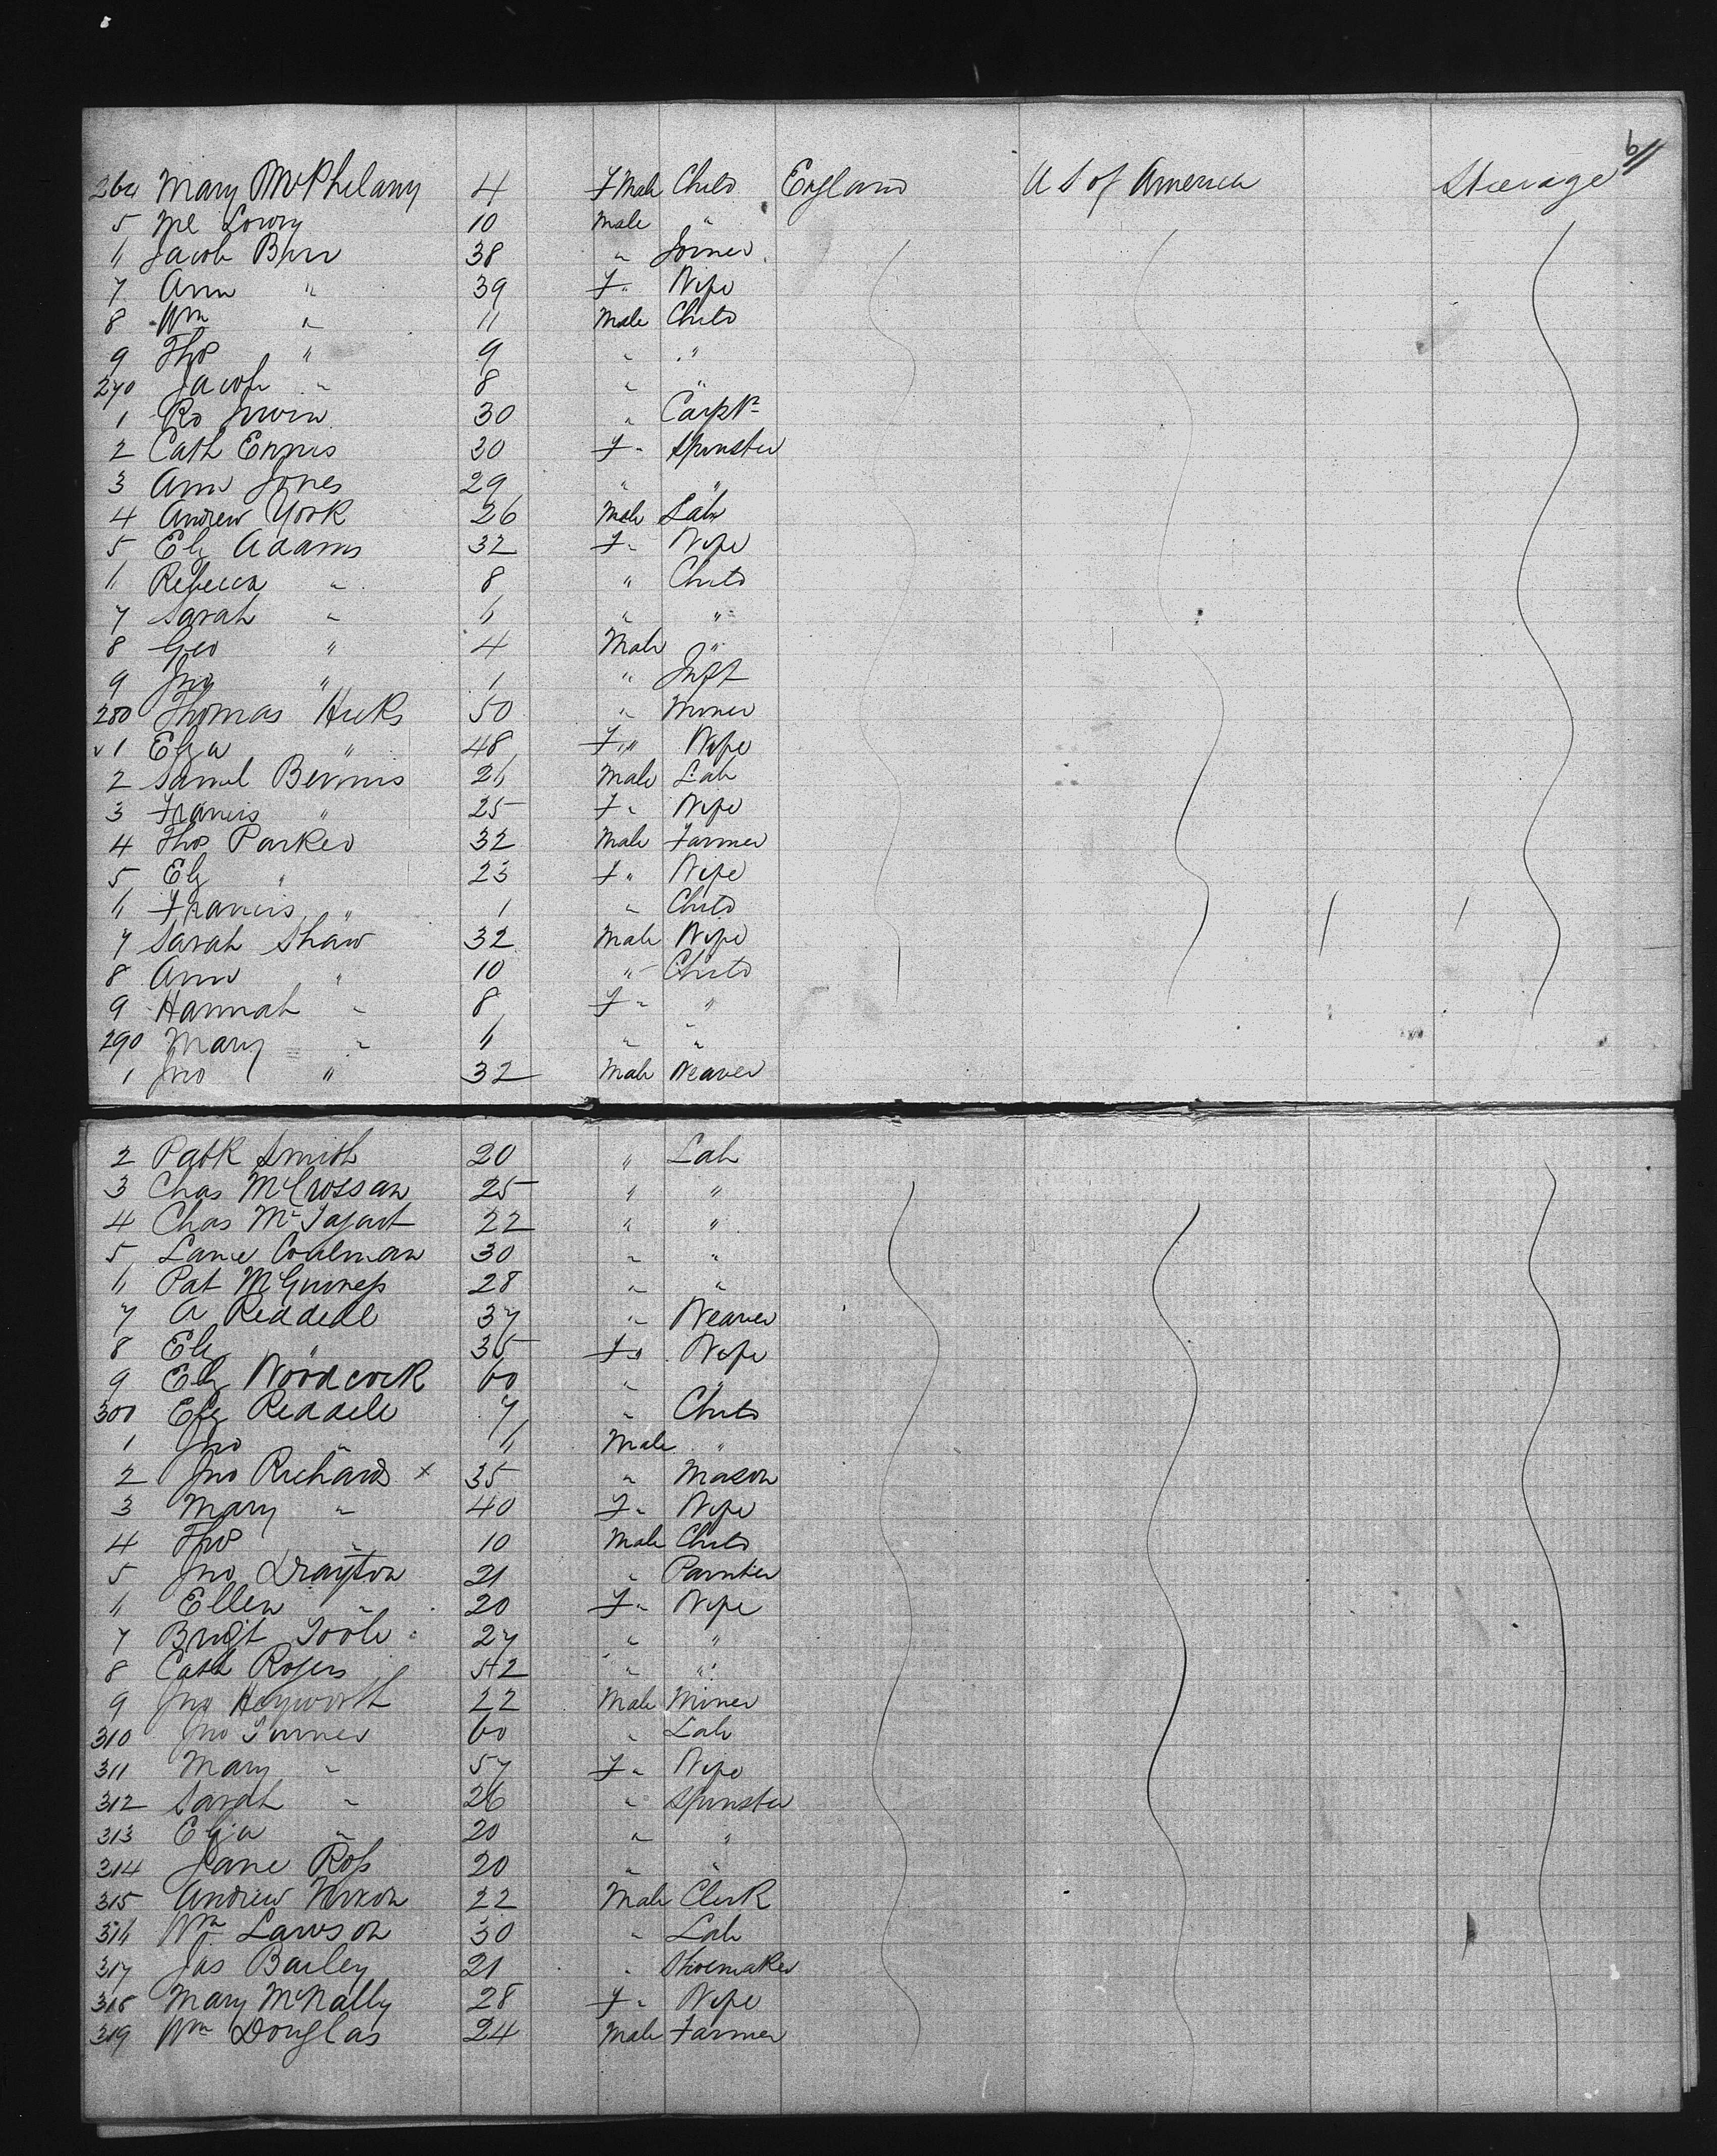 6
264 Mary McPhelany 4 F Male Child England U S of America Steerage
5 Ml Lowry 10 Male "
6 Jacob Burr 38 " Joiner
7 Ann " 39 F " Wife
8 Wm " 11 Male Child
9 Thos " 9 " "
270 Jacob " 8 " "
1 Ro Irwin 30 " Carptr
2 Cath Ennis 30 F " Spinster
3 Ann Jones 29 " "
4 Andrew York 26 Male Lab
5 Elz Adams 32 F " Wife
6 Rebecca " 8 " Child
7 Sarah " 6 " "
8 Geo " 4 Male "
9 Jno " 1 " Inft
280 Thomas Hicks 50 " Miner
1 Eliza " 48 F " Wife
2 Saml Bennis 26 Male Lab
3 Francis " 25 F " Wife
4 Thos Parker 32 Male Farmer
5 Elz " 23 F " Wife
6 Francis " 1 " Child
7 Sarah Shaw 32 Male Wife
8 Ann " 10 " Child
9 Hannah " 8 F " "
290 Mary " 6 " "
1 Jno " 32 Male Weaver
2 Patk Smith 20 " Lab
3 Chas McCrossan 25 " "
4 Chas McTagart 22 " "
5 Lane Coulman 30 " "
6 Pat McGuiness 28 " "
7 A Reddell 37 " Weaver
8 Elz " 35 F " Wife
9 Elz Woodcock 60 " "
300 Elz Reddell 7 " Child
1 Jno " 6 Male "
2 Jno Richards x 35 " Mason
3 Mary " 40 F " Wife
4 Thos " 10 Male Child
5 Jno Drayton 21 " Painter
6 Ellen " 20 F " Wife
7 Brigt Toole 27 " "
8 Cath Rogers 42 " "
9 Jno Heyworth 22 Male Miner
310 Jno Turner 60 " Lab
311 Mary " 57 F " Wife
312 Sarah " 26 " Spinster
313 Eliza " 20 " "
314 Jane Ross 20 " "
315 Andrew Nixon 22 Male Clerk
316 Wm Lawson 30 " Lab
317 Jas Bailey 21 " Shoemaker
318 Mary McNally 28 F " Wife
319 Wm Douglas 24 Male Farmer